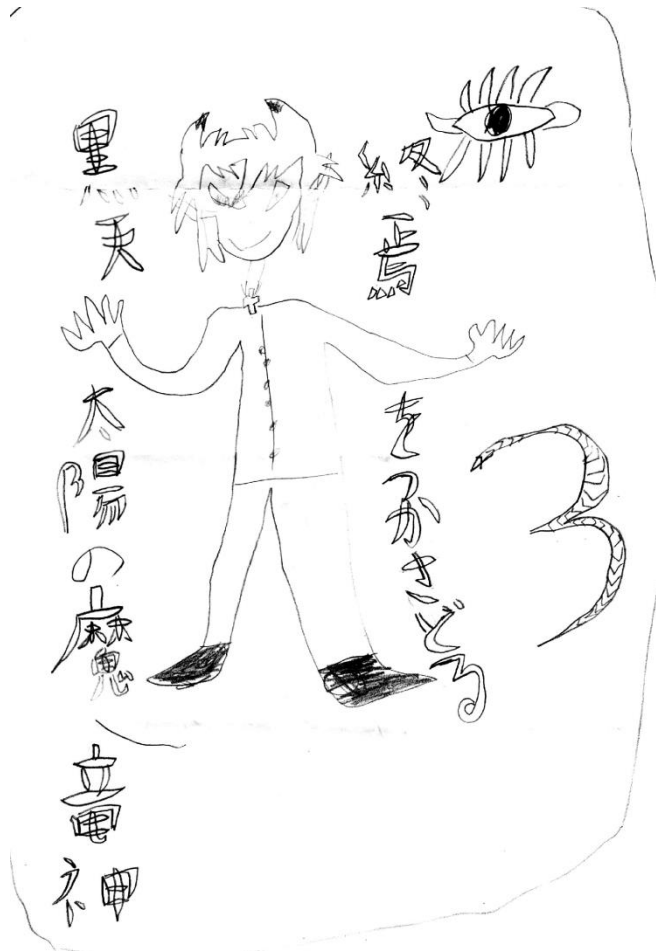 終焉をつかさどる
黒天太陽の魔竜神